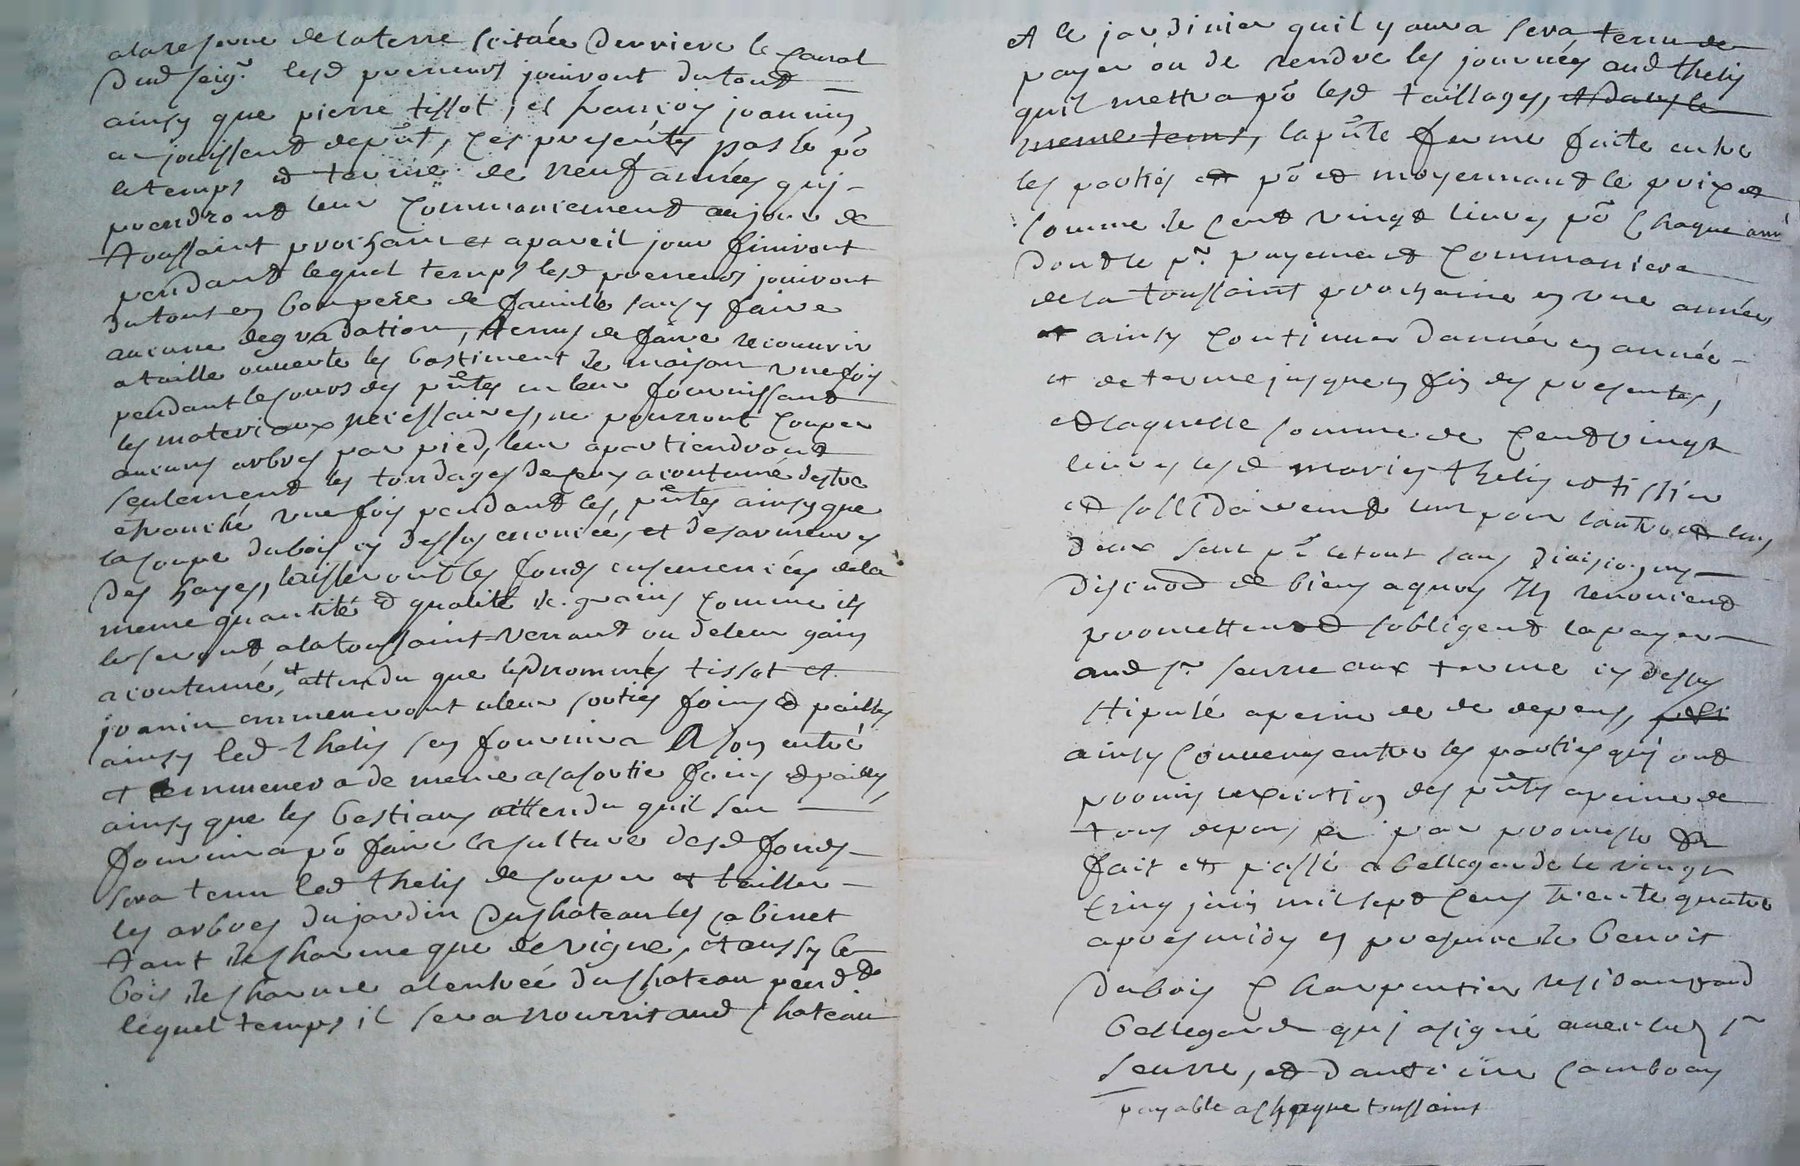 alareserve de laterre scituée derriere le canal
dud seigr lesd preneurs jouiront dutout
ainsy que pierre tissot, et françois joannin
en jouissent depnt, ces presentes pas le po
letemps et terme de neuf années qui
prendront leur commancement au jour de
toussaint prochain et apareil jour finiront
pendant lequel temps lesd preneurs jouiront
dutout en bonpere de famille sansy faire
aucune degradation, tenus de faire recouvrir
ataille ouverte les bastiment de maison une fois
pendant lecours des pntes en leur fournissant
les materiaux necessaires, ne pourront couper
aucuns arbres par pied, leur apartiendront
seulement les tondages de ceux acoutumé destre
ebranché une fois pendant les pntes ainsy que
lacoupe dubois cy dessus enoncée, et
des hayes, laisseront les fonds ensemencées dela
meme quantité et qualité de grains comme ils
leseront alatoussaint venant ou deleur gain
acoutumé, et attendu que lesd nommés tissot et
joanin emmeneront aleur sorties foins et pailles
ainsy led thelis sen fournira a son entré
et emmenera de meme asasortie foins et pailles
ainsy que les bestiaux attendu quil sen
fournira po faire laculture desd fonds
sera tenu led thelis de couper et tailler
les arbres dujardin duchateau les cabinet
tant de charme que de vigne, et aussy le
bois de charme alentrée duchateau pendt
lequel temps il sera nourrit aud chateau
et le jardinier quil y aura sera tenu de
payer ou de rendre les journées aud thelis
quil mettra po lesd taillages, et dans le
meme tems, lapnte ferme faite entre
les parties et po et moyennant le prix et
somme de cent vingt livres po chaque anné
dont le pr payement commancera
de la toussaint prochaine en une année
et ainsy continuer d'année en année
et de terme jusquen fin des presentes,
et laquelle somme de cent vingt
livres lesd maries thelis et tissier
et sollidairement lun pour lautre et lun
deux seul po letout sans division ny
discution de biens a quoy ils renoncent
promettent et sobligent la payer
aud sr seurre aux terme cy dessus
stipulé apeine de de depens,
ainsy convenu entre les parties qui ont
promis lexecution des pntes apeine de
tous depens par promesse
fait et passé a bellegarde le vingt
cinq juin mil sept cens trente quatre
apres midy en presence de benoit
dubois charpentier residant aud
bellegarde qui asigné avec led sr
seurre, et dantoine cambray
payable a chaque toussaint